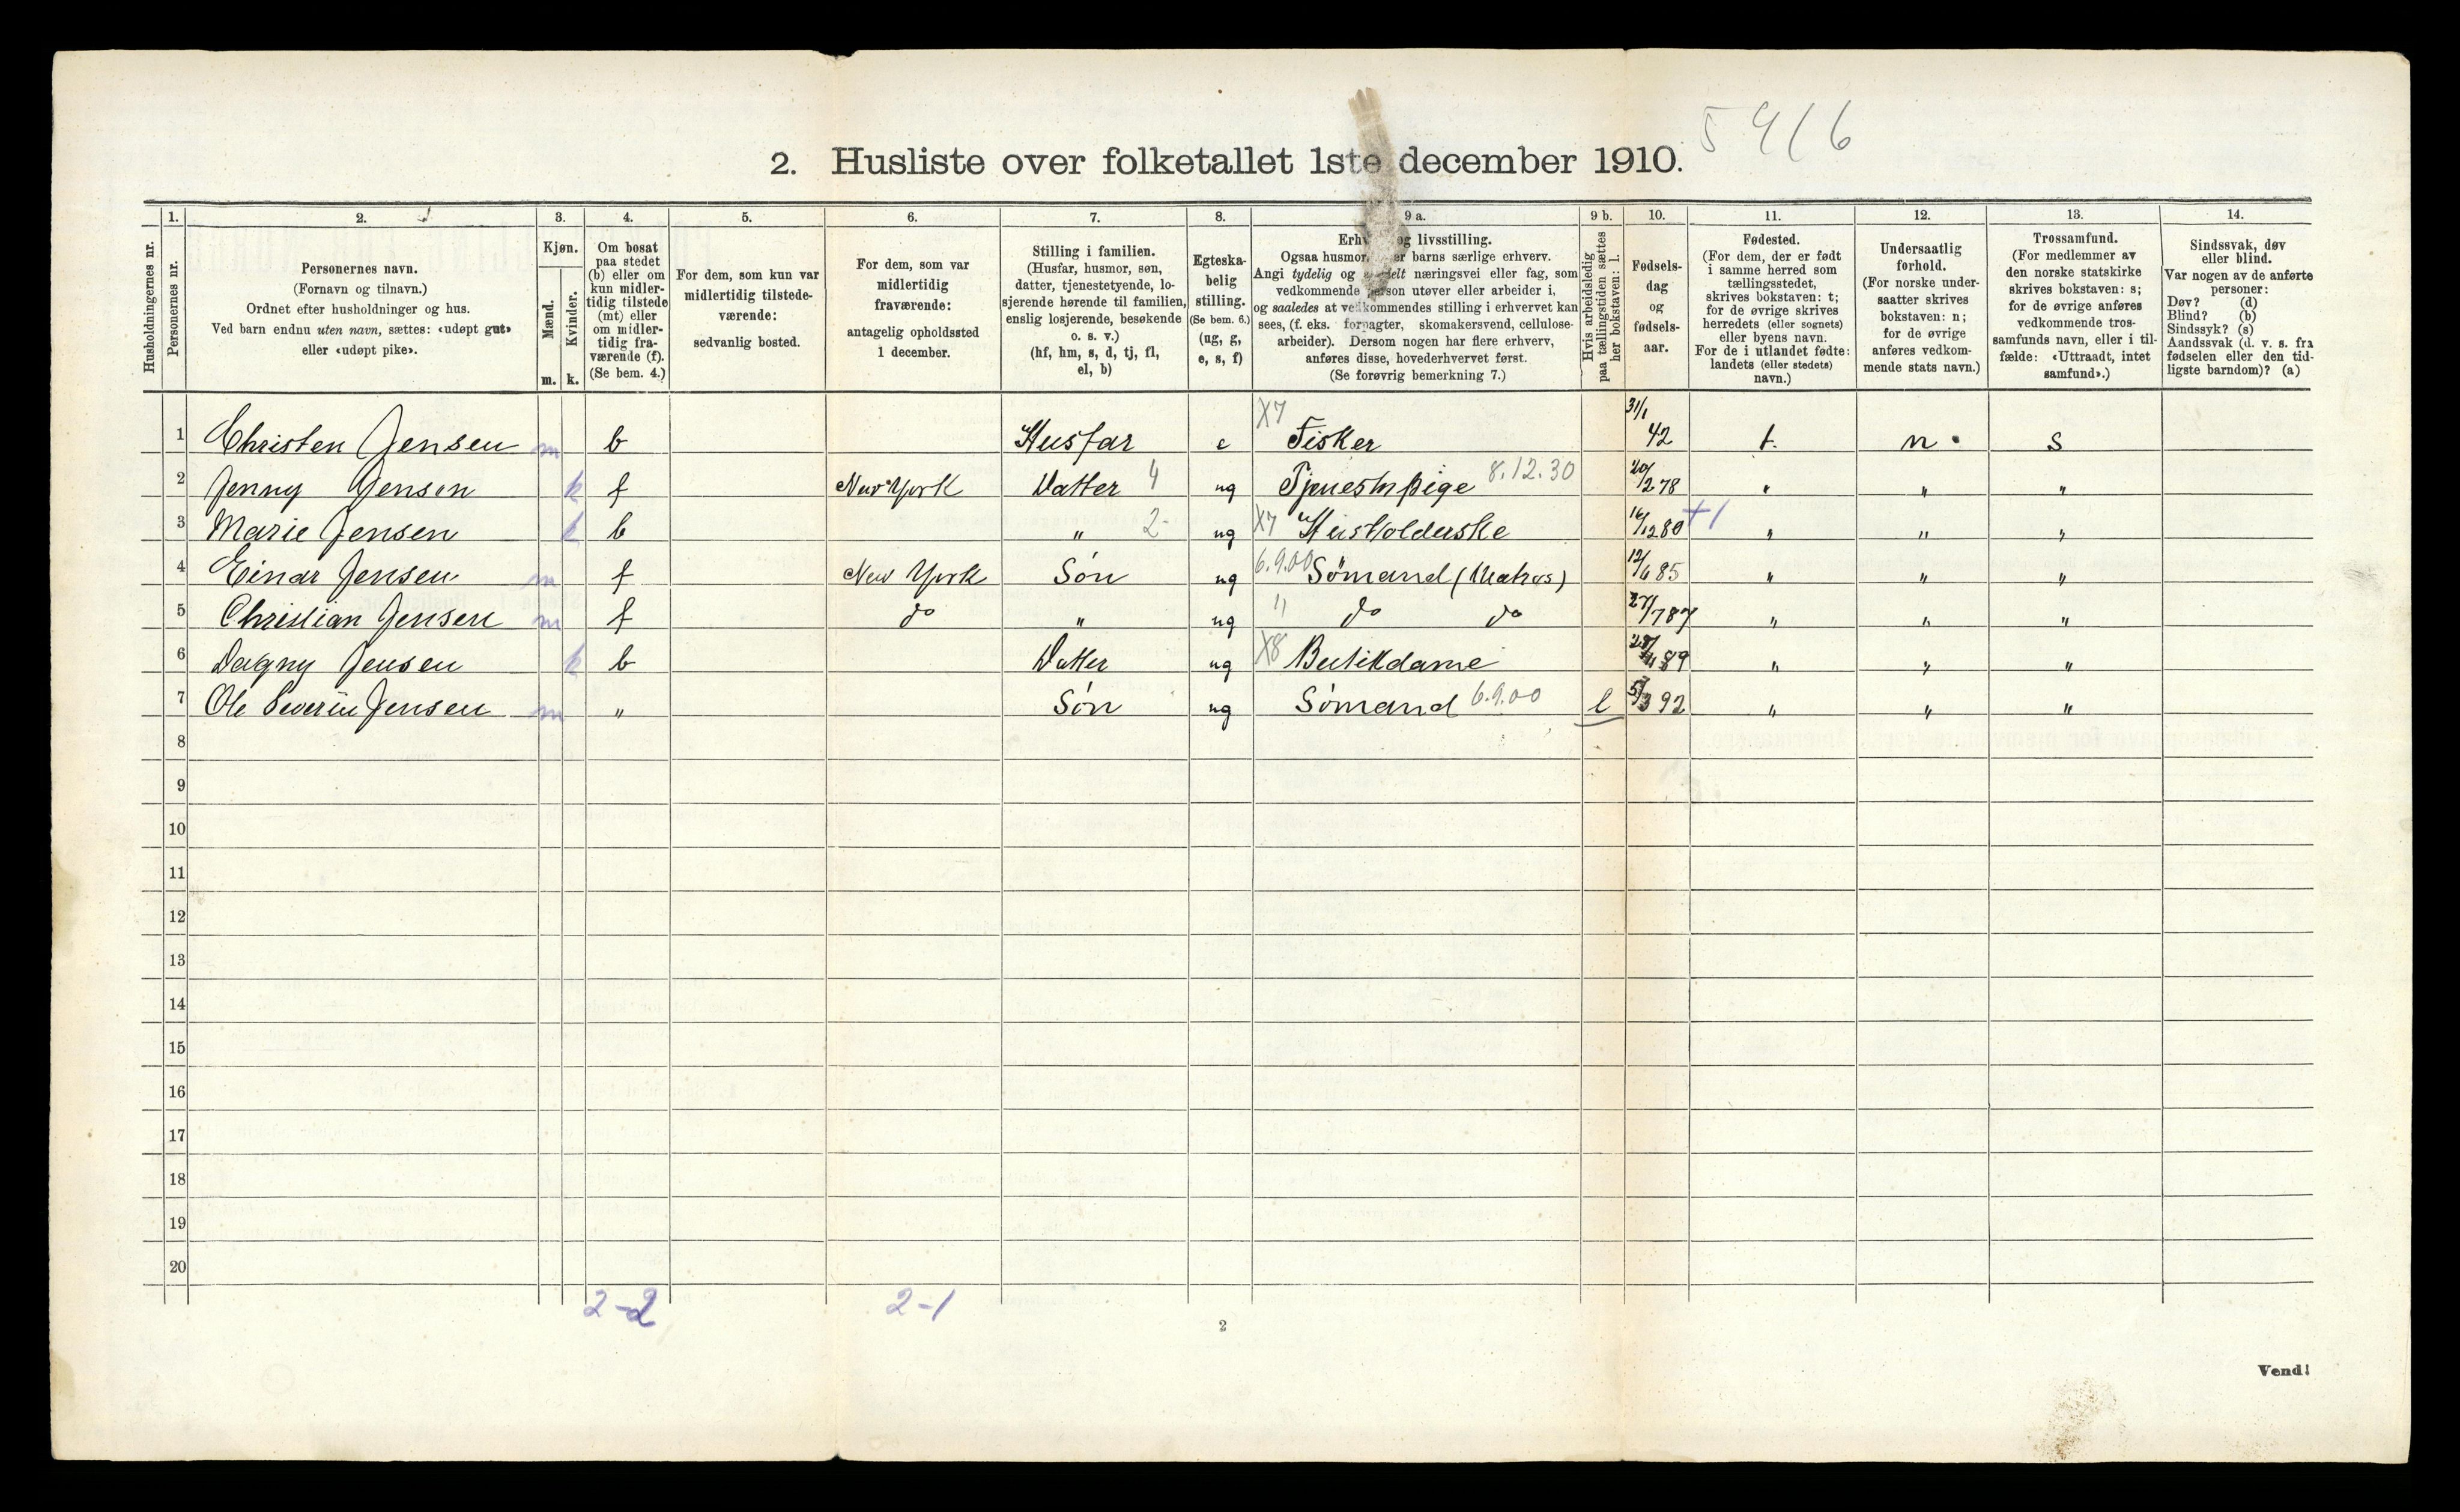 5916
2. Husliste over folketallet 1ste december 1910.
Husholdningernes nr.
1.
Personernes nr.
2.
Personernes navn.
(Fornavn og tilnavn.)
Ordnet efter husholdninger og hus.
Ved barn endnu uten navn, sættes: «udøpt gut»
eller «udøpt pike».
3.
Kjøn.
Mænd.
Kvinder.
m. k.
4.
Om bosat
paa stedet
(b) eller om
kun midler-
tidig tilstede
(mt) eller
om midler-
tidig fra-
værende (f).
(Se bem. 4.)
5.
For dem, som kun var
midlertidig tilstede-
værende:
sedvanlig bosted.
6.
For dem, som var
midlertidig
fraværende:
antagelig opholdssted
1 december.
7.
Stilling i familien.
(Husfar, husmor, søn,
datter, tjenestetyende, lo-
sjerende hørende til familien,
enslig losjerende, besøkende
o. s. v.)
(hf, hm, s, d, tj, fl,
el, b)
8.
Egteska-
belig
stilling.
(Se bem. 6.)
(ug, g,
e, s, f)
9 a.
og livsstilling.
Ogsaa barns særlige erhverv.
Angi tydelig og næringsvei eller fag, som
vedkommende person utøver eller arbeider i,
og saaledes at vedkommendes stilling i erhvervet kan
sees, (f. eks. forpagter, skomakersvend, cellulose-
arbeider). Dersom nogen har flere erhverv,
anføres disse, hovederhvervet først.
(Se forøvrig bemerkning 7.)
9 b.
Hvis arbeidsledig
paa tællingstiden sættes
her bokstaven: l.
10.
Fødsels-
dag
og
fødsels-
aar.
11.
Fødested.
(For dem, der er født
i samme herred som
tællingsstedet,
skrives bokstaven: t;
for de øvrige skrives
herredets (eller sognets)
eller byens navn.
For de i utlandet fødte:
landets (eller stedets)
navn.)
12.
Undersaatlig
forhold.
(For norske under-
saatter skrives
bokstaven: n;
for de øvrige
anføres vedkom-
mende stats navn.)
13.
Trossamfund.
(For medlemmer av
den norske statskirke
skrives bokstaven: s;
for de øvrige anføres
vedkommende tros-
samfunds navn, eller i til-
fælde: «Uttraadt, intet
samfund».)
14.
Sindssvak, døv
eller blind.
Var nogen av de anførte
personer:
Døv? (d)
Blind? (b)
Sindssyk? (s)
Aandssvak (d. v. s. fra
fødselen eller den tid-
ligste barndom)? (a)
1 Christen Jensen m b Husfar e X7 Fisker 31/1 42 t. n. s
2 Jenny Jensen k f New York Datter 4 ug Tjenestepige 8.12.30 20/2 78 " " "
3 Marie Jensen k b " 2- ug X7 Husholderske 16/12 80 +1 " " "
4 Einar Jensen m f New York Sön ug 6.9.00 Sömand (Matros) 12/6 85 " " "
5 Christian Jensen m f do " ug " do do 27/7 87 " " "
6 Dagny Jensen k b Datter ug X8 Butikdame 89 " " "
7 Ole Severin Jensen m " Sön ug Sömand 6.9.00 l 5/3 92 " " "
8
9
10
11
12
13
14
15
16
17
18
19
20
2-2 2-1
2
Vend!